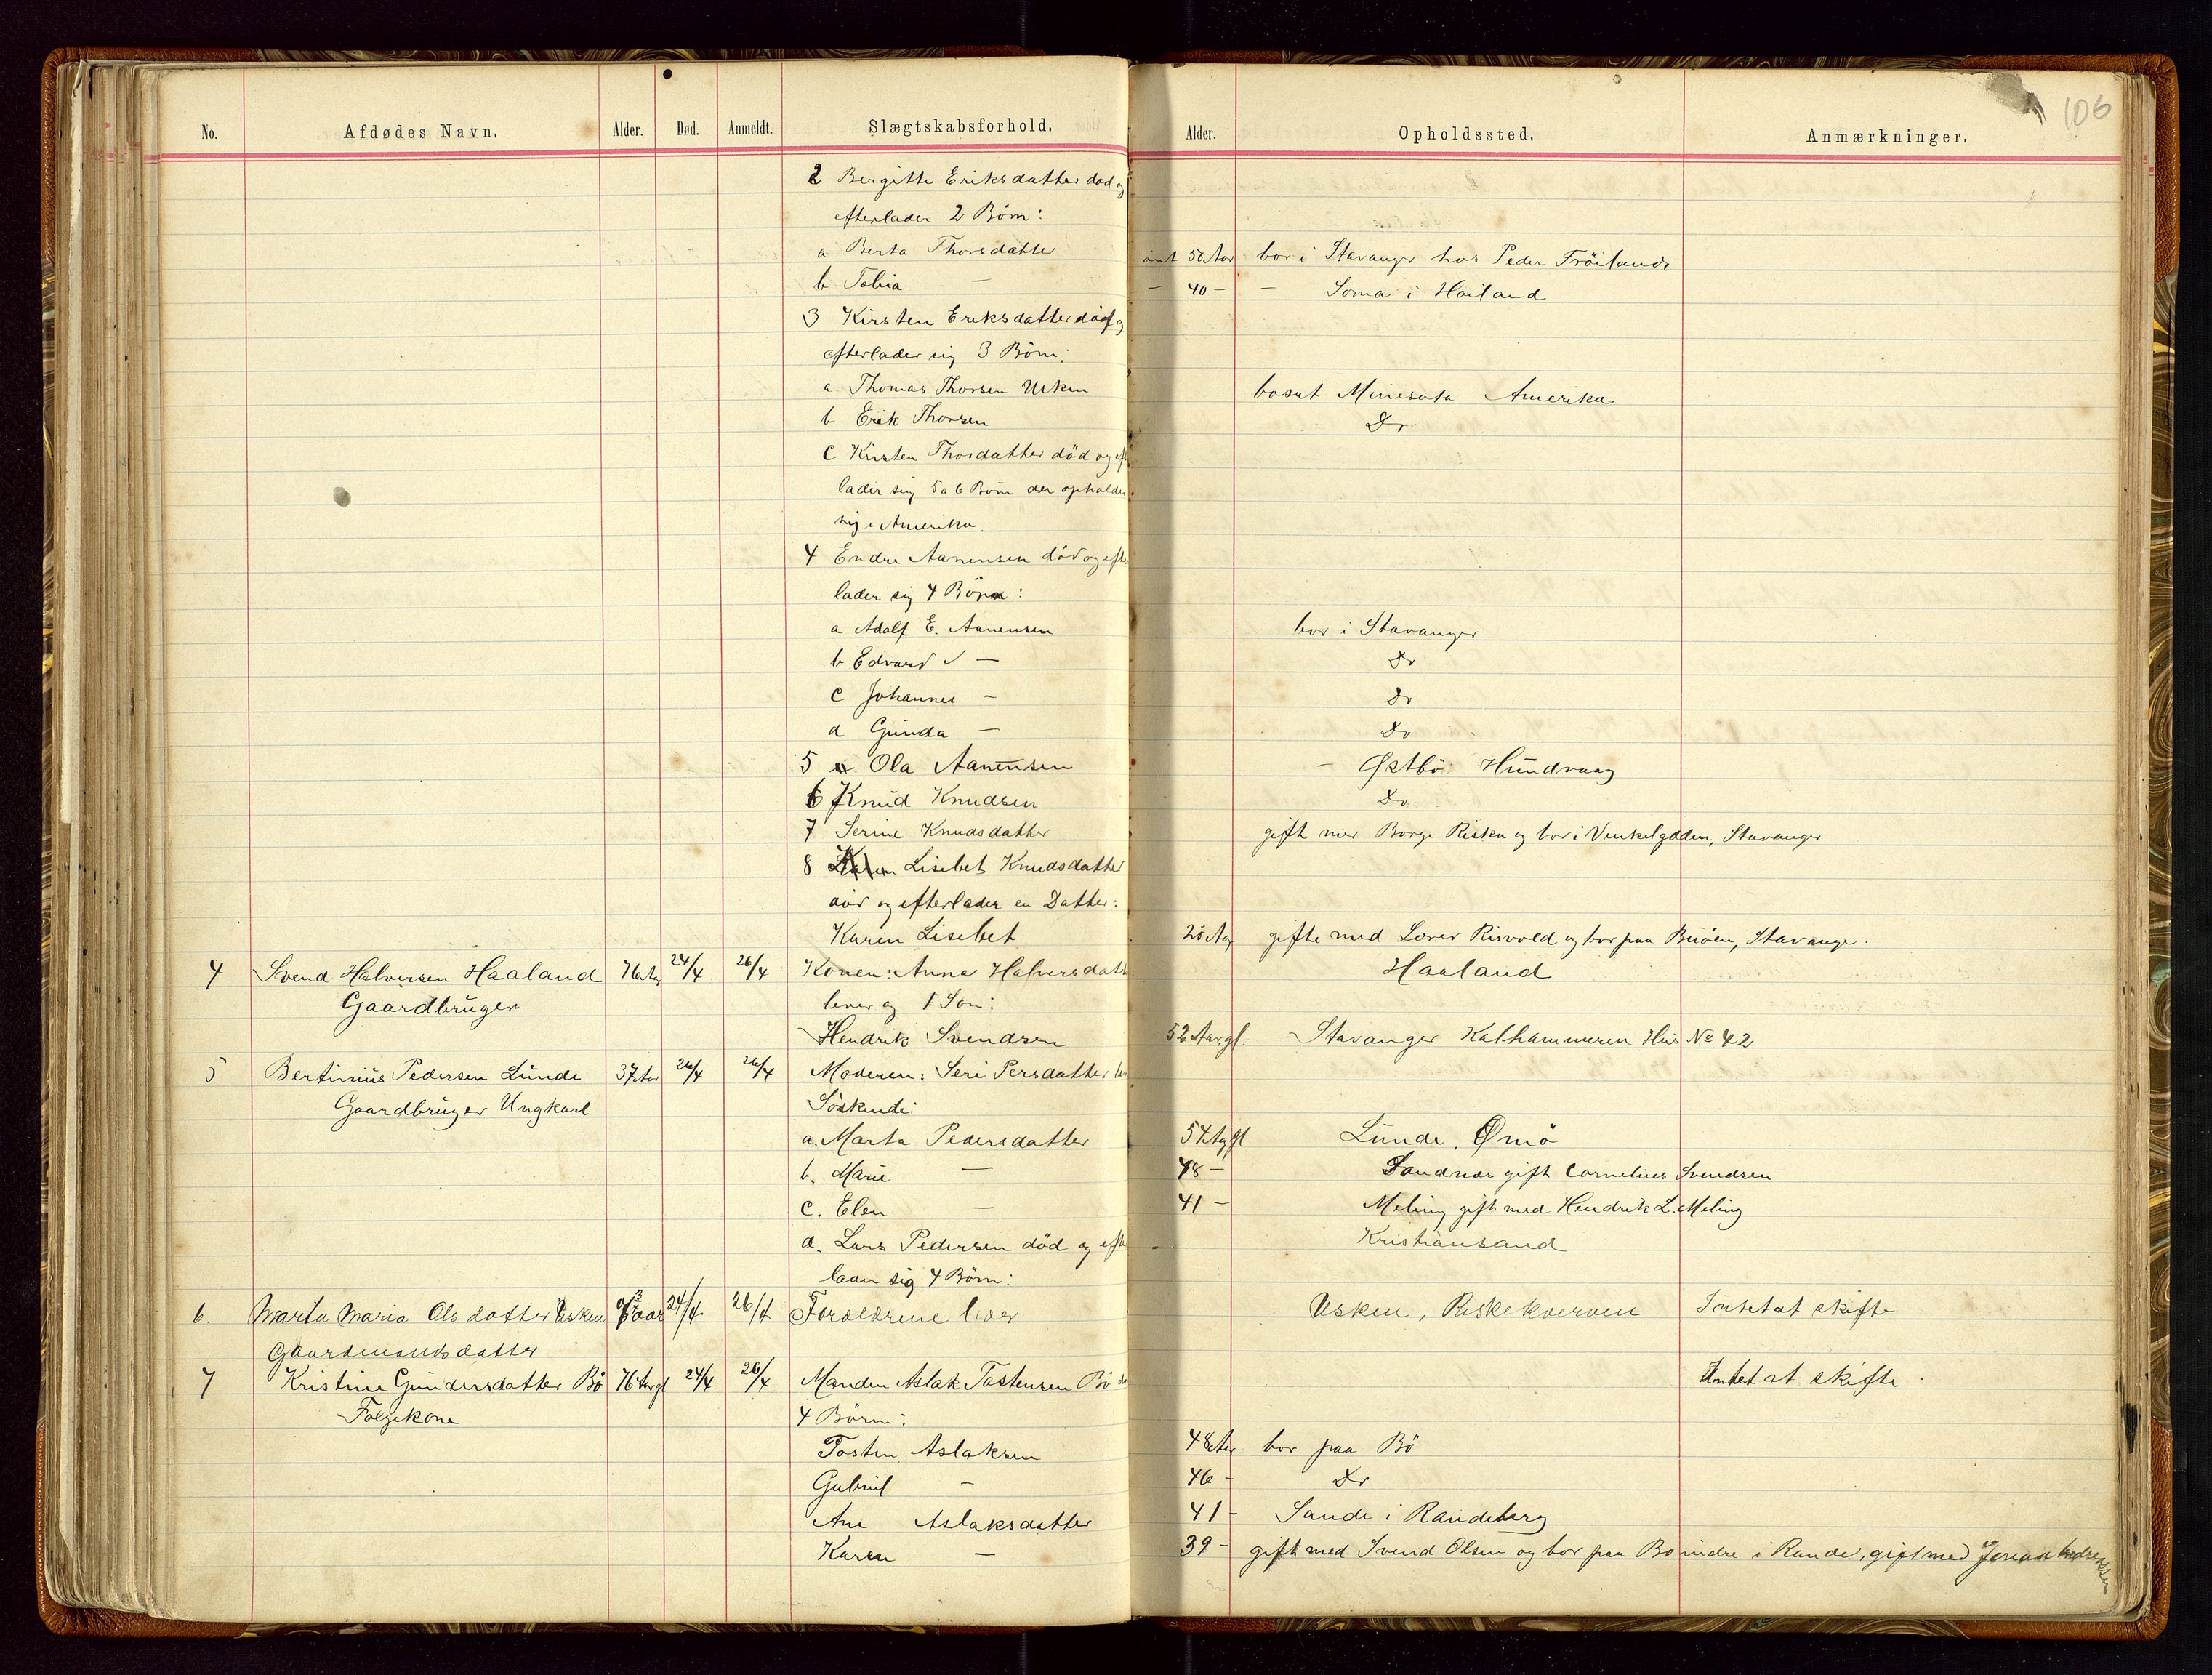 106
No. Afdødes Navn. Alder. Død. Anmeldt. Slægtskabsforhold. Alder. Opholdssted. Anmærkninger.
2 Bergitte Eriksdatter død og
efterlader 2 Börn:
a Berta Thorsdatter omt 50 Aar bor i Stavanger hos Peder Fröilande
b Tobia — — 40 — — Soma i Höiland
3 Kirsten Eriksdatter död og
efterlader sig 3 Börn:
a Thomas Thorsen Usken bosat Minesota Amerika
b Erik Thorsen Do
c Kirsten Thorsdatter död og ef
lader sig 5 a 6 Börn der opholder
sig i Amerika.
4 Endre Aanensen död og efter
lader sig 4 Börn:
a Adolf E. Aanensen bor i Stavanger
b Edvard — Do
c Johannes — Do
d Gunda — Do
5 Ola Aanensen — Østbö Hundvaag
6 Knud Knudsen Do
7 Serine Knudsdatter gift med Borge Riska og bor i Venkelgaden, Stavanger
8 Lisebet Knudsdatter
död og efterlader en Datter:
Karen Lisebet 25 Aar gifte med Lærer Risvold og bor paa Buöen, Stavanger.
4 Svend Halvorsen Haaland 76 Aar 24/4 26/4 Konen: Anna Halvorsdatt Haaland
Gaardbruger lever og 1 Son:
Hendrik Svendsen 52 Aar gl. Stavanger Kalhammeren Hus No 42
5 Bertinius Pedersen Lunde 37 Aar 26/4 26/4 Moderen: Seri Persdatter lev
Gaardbruger Ungkarl Söskende:
a. Marta Pedersdatter 54 Aar gl Lunde, Ømö
b. Marie — 48 — Sandnes gift Cornelius Svendsen
c. Elen — 41 — Meling gift med Hendrik L. Meling
d. Lars Pedersen död og eft Kristiansand
lader sig 4 Börn:
6. Marta Maria Olsdatter Usken aar 24/4 26/4 Foraldrene lever Usken, Intet at skifte
Gaardmandsdatter
7 Kristine Gundersdatter Bö 76 Aar gl 24/4 26/4 Manden Aslak Tostensen Bö Intet at skifte.
Folgekone 4 Börn:
Tosten Aslaksen 48 Aar bor paa Bö
Gabriel — 46 — Do
Ane Aslaksdatter 41 — Sande i Randeberg
Karen — 39 — gift med Svend Olsen og bor paa Bö indre i Rande, gift med